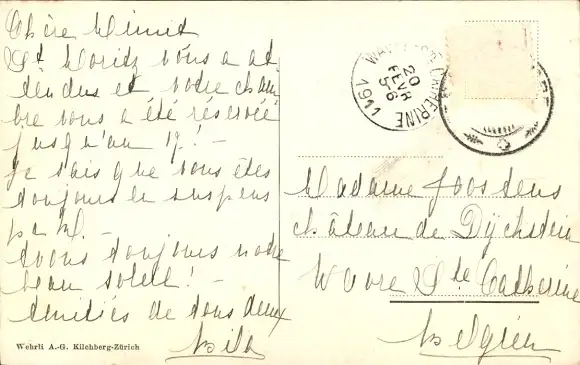 Chère Minnit
St Moritz vous a at-
tendus et votre cham-
bre vous a été réservée
jusqu'au 17! -
Je sais que vous êtes
toujours en suspens
par
Avons toujours notre
beau soleil! -
Amitiés de tous deux
Wehrli A.-G. Kilchberg-Zürich
WAVRE-STE-CATHERINE
20
FEVR
5-6
1911
Madame Joostens
château de Dÿckstein
Wavre Ste Catherine
Belgien